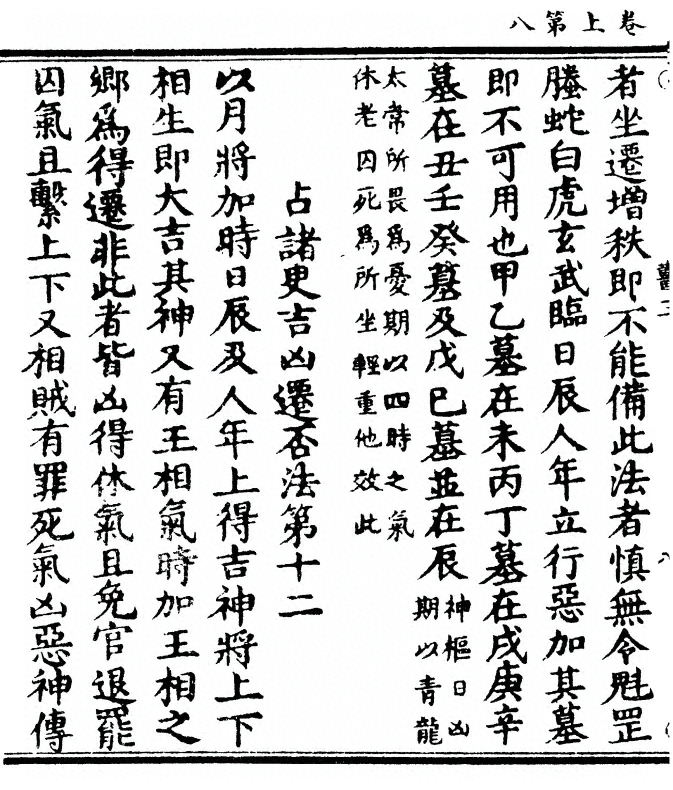 卷上第八
者坐遷增秩即不能備此法者慎無令魁罡
螣蛇白虎玄武臨日辰人年立行惡加其墓
即不可用也甲乙墓在未丙丁墓在戌庚辛
墓在丑壬癸墓及戊巳墓並在辰
神樞曰凶
期以青龍
太常所畏為憂期以四時之氣
休老囚死為所坐輕重他效此
占諸吏吉凶遷否法第十二
以月將加時日辰及人年上得吉神將上下
相生即大吉其神又有王相氣時加王相之
鄉為得遷非此者皆凶得休氣且免官退罷
囚氣且繫上下又相賊有罪死氣凶惡神傳